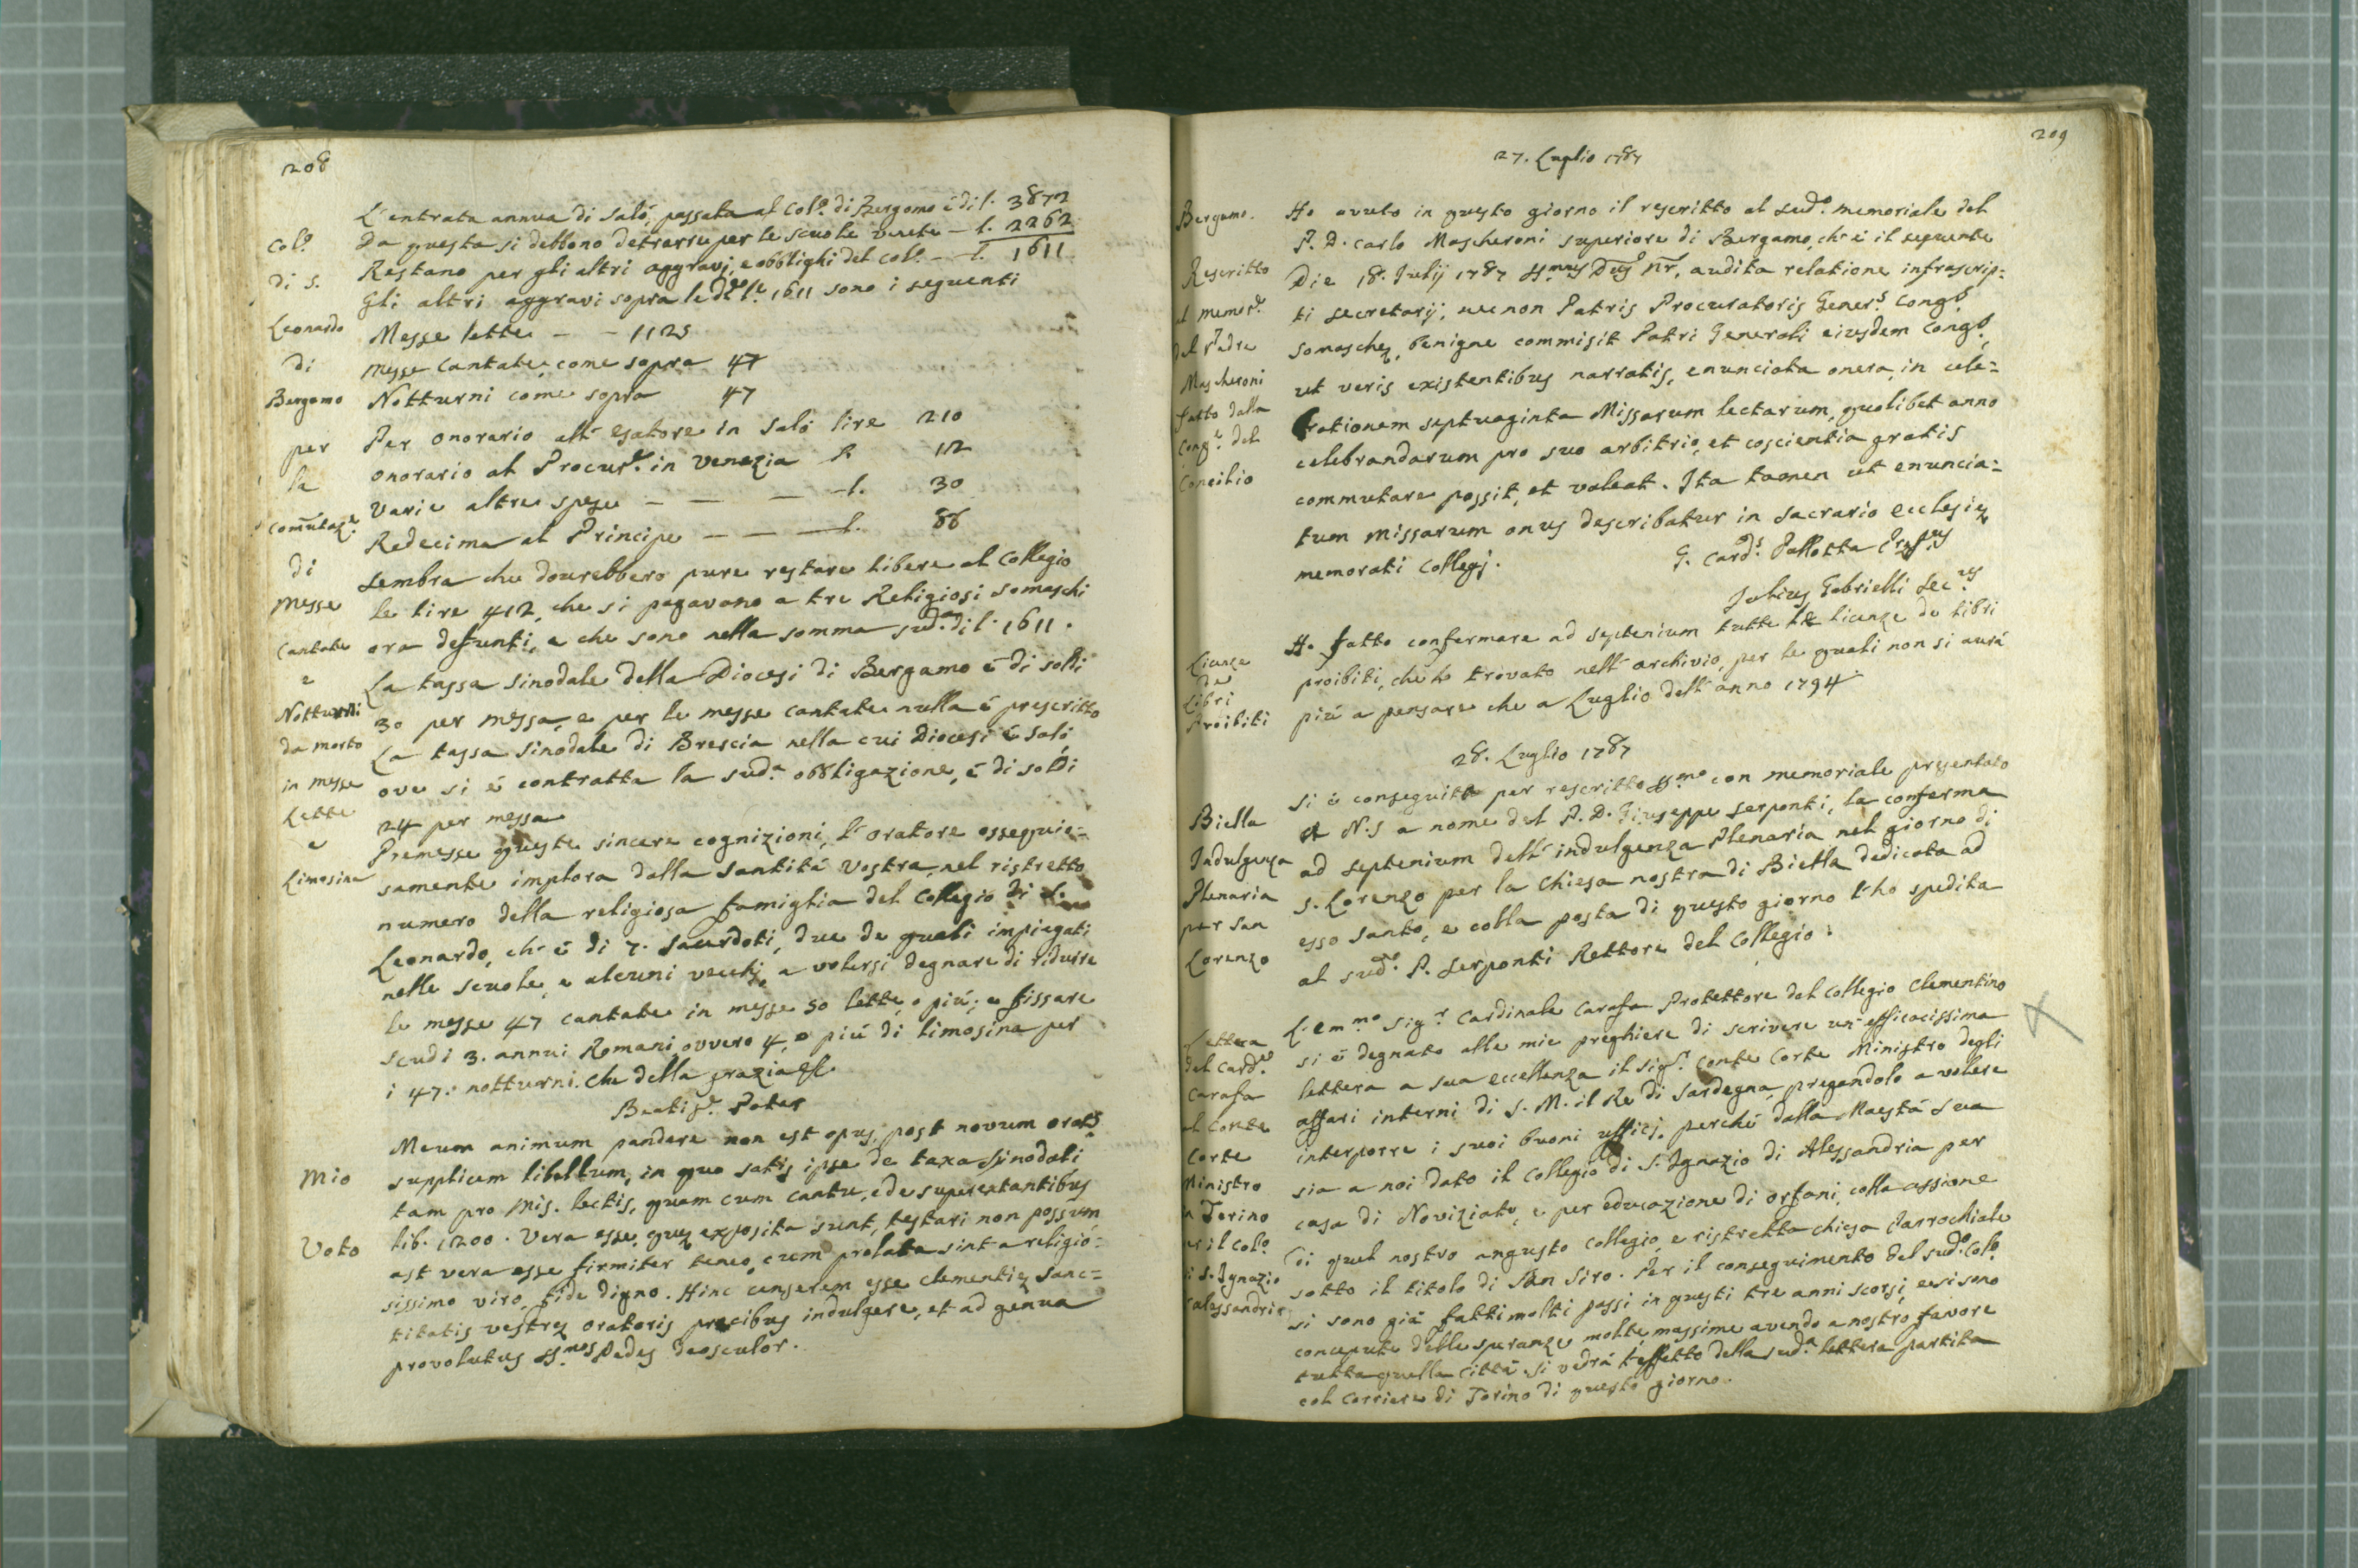 208
L'entrata annua di Salò, passata al Col.º di Bergamo è di l. 3872
Da questa si debbono detrarre per le scuole venete — l. 2262
Restano per gli altri aggravj, e obblighi del Col.º — l. 1611
Gli altri aggravi sopra le d.e l.e 1611 sono i seguenti
Messe lette — — 1125
Messe cantate, come sopra 47
Notturni come sopra 47
Per onorario all'esatore in Salò lire 210
onorario al Procur.e in Venezia l. 112
Varie altre spese — — — l. 30
Redecima al Principe — — — l. 88
Sembra che dourebbero pure restare libere al Collegio
le lire 412, che si pagavano a tre Religiosi Somaschi
ora defunti, e che sono nella somma sud.a di l. 1611.
La tassa sinodale della Diocesi di Bergamo è di soldi
30 per messa, e per le messe cantate nulla è prescritto
La tassa sinodale di Brescia nella cui Diocesi è Salò,
ove si è contratta la sud.a obbligazione, è di soldi
24 per messa
Premesse queste sincere cognizioni, l'oratore ossequio=
samente implora dalla Santità Vostra, nel ristretto
numero della religiosa famiglia del Collegio di S.
Leonardo, ch'è di 7. Sacerdoti, due de quali impiegati
nelle scuole, e alcuni vecchj, a volersi degnare di ridurre
le messe 47 cantate in messe 50 lette, o più; e fissare
scudi 3. annui Romani, ovvero 4, o più di limosina per
i 47: notturni. Che della grazia &c.
Col.º
di S.
Leonardo
di
Bergamo
per
la
Comutaz.e
di
Messe
Cantate
e
Notturni
da morto
in messe
Lette
e
Limosina
Beatis.e Pater
Meum animum pandere non est opus, post novum orat.s
supplicem libellum, in quo satis ipse de taxa sinodali
tam pro Mis. lectis, quam cum cantu, ede superextantibus
lib. 1200. Vera esse, quę exposita sunt, testari non possum
ast vera esse firmiter teneo, cum prolata sint a religio=
sissimo viro, fide digno. Hinc censerem esse clementię Sanc=
titatis vestrę oratoris precibus indulgere, et ad genua
provolutus SS.mos Pedes deosculor.
Mio
Voto
209
27. Luglio 1787
Ho avuto in questo giorno il rescritto al sud.º memoriale del
P. D. Carlo Mascheroni superiore di Bergamo, ch'è il seguente
Die 18. Julij 1787 SS.mus Dus nr, audita relatione infrascrip=
ti Secretarij, nec non Patris Procuratoris Gener.s Cong.s
Somaschę, benigne commisit Patri Generali eiusdem Cong.s,
ut veris existentibus narratis, enunciata onera, in cele=
brationem septuaginta Missarum lectarum, quolibet anno
celebrandarum pro suo arbitrio, et coscientia gratis
commutare possit, et valeat. Ita tamen ut enuncia=
tum missarum onus describatur in sacrario ecclesię
memorati Collegj.
G. Card.s Pallotta Pręf.us
Julius Gabrielli Sec.us
Bergamo.
Rescritto
al memor.e
del Padre
Mascheroni
fatto dalla
Cong.e del
Concilio
Ho fatto confermare ad septenium tutte le licenze de libri
proibiti, che ho trovato nell'archivio, per le quali non si aurà
più a pensare che a Luglio dell'anno 1794
Licenze
de
Libri
Proibiti
28. Luglio 1787
Si è conseguita per rescritto SS.mo con memoriale presentato
a N.S a nome del P. D. Giuseppe Serponti, la conferma
ad septenium dell'indulgenza Plenaria nel giorno di
S. Lorenzo per la Chiesa nostra di Biella dedicata ad
esso Santo, e colla posta di questo giorno l'ho spedita
al sud.º P. Serponti Rettore del Collegio.
Biella
Indulgenza
Plenaria
per San
Lorenzo
L'em.mo Sig.r Cardinale Carafa Protettore del Collegio Clementino
si è degnato alle mie preghiere di scrivere un'efficacissima
lettera a sua eccellenza il Sig.r Conte Corte Ministro degli
affari interni di S. M. il Re di Sardegna, pregandolo a volere
interporre i suoi buoni ufficj, perchè dalla Maestà Sua
sia a noi dato il Collegio di S. Ignazio di Alessandria per
casa di Noviziato, e per educazione di orfani, colla cessione
di quel nostro angusto collegio, e ristretta chiesa Parrochiale
sotto il titolo di San Siro. Per il conseguimento del sud.º Col.º
si sono già fatti molti passi in questi tre anni scorsi, e si sono
concepute delle speranze molte, massime avendo a nostro favore
tutta quella Città. Si vedrà l'effetto della sud.a lettera partita
col Corriere di Torino di questo giorno.
Lettera
del Card.e
Carafa
al Conte
Corte
Ministro
a Torino
per il Col.º
di S. Ignazio
d'alessandria